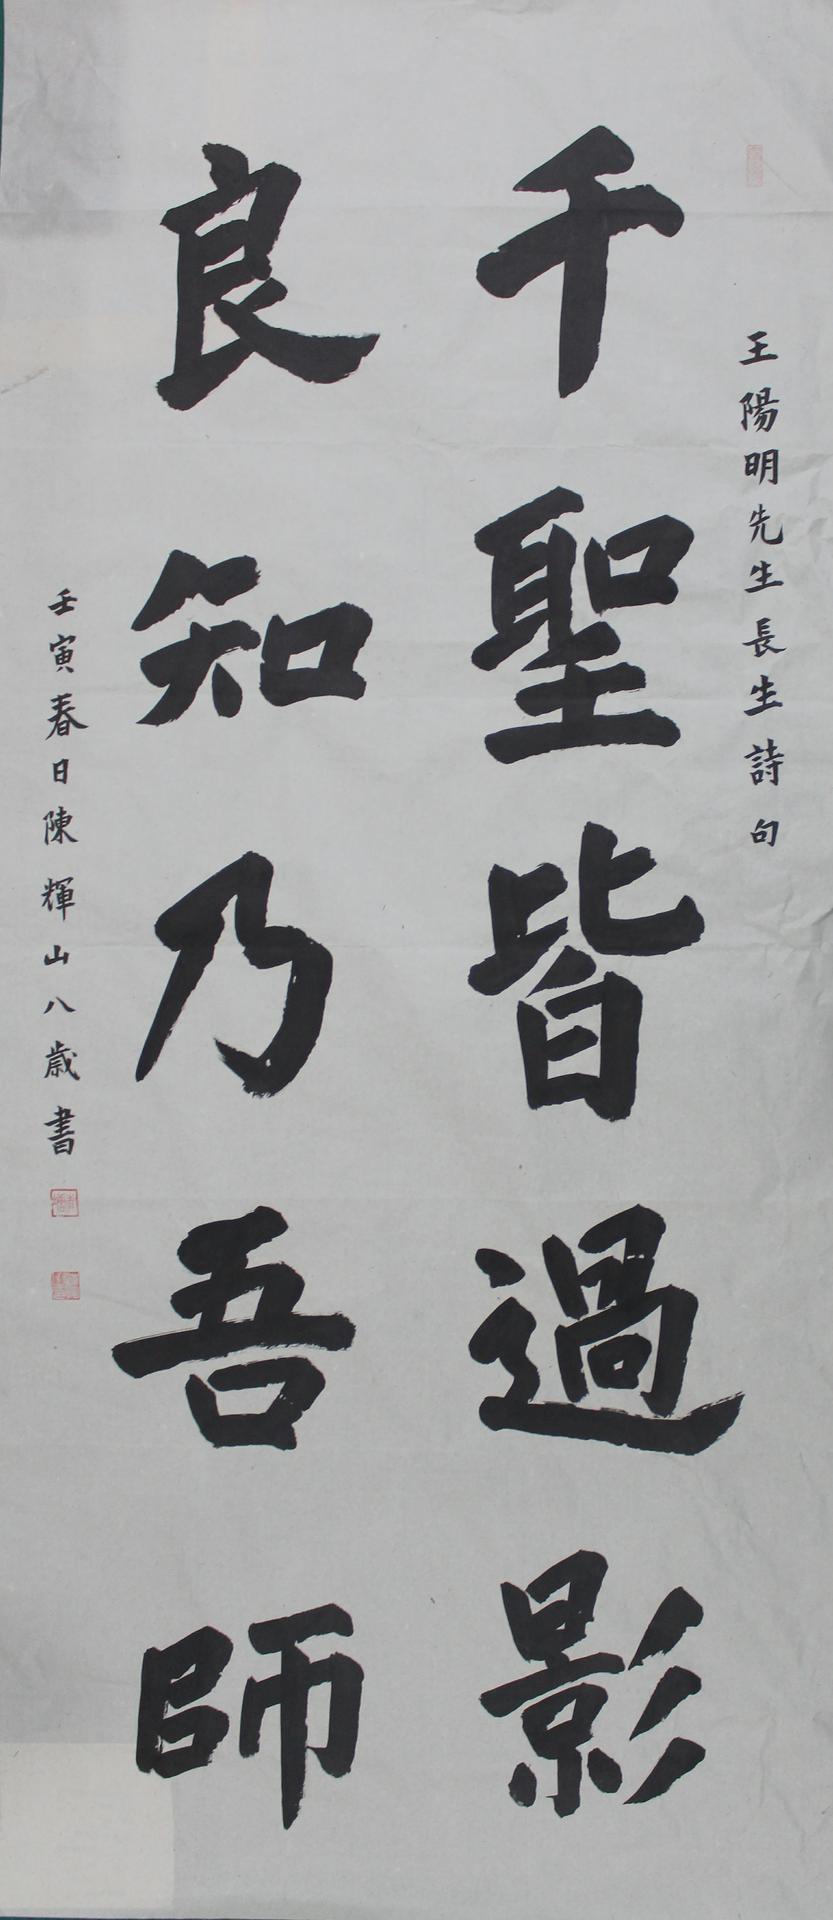 王陽明先生長生詩句
千聖皆過影
良知乃吾師
壬寅春日陳輝山八歳書